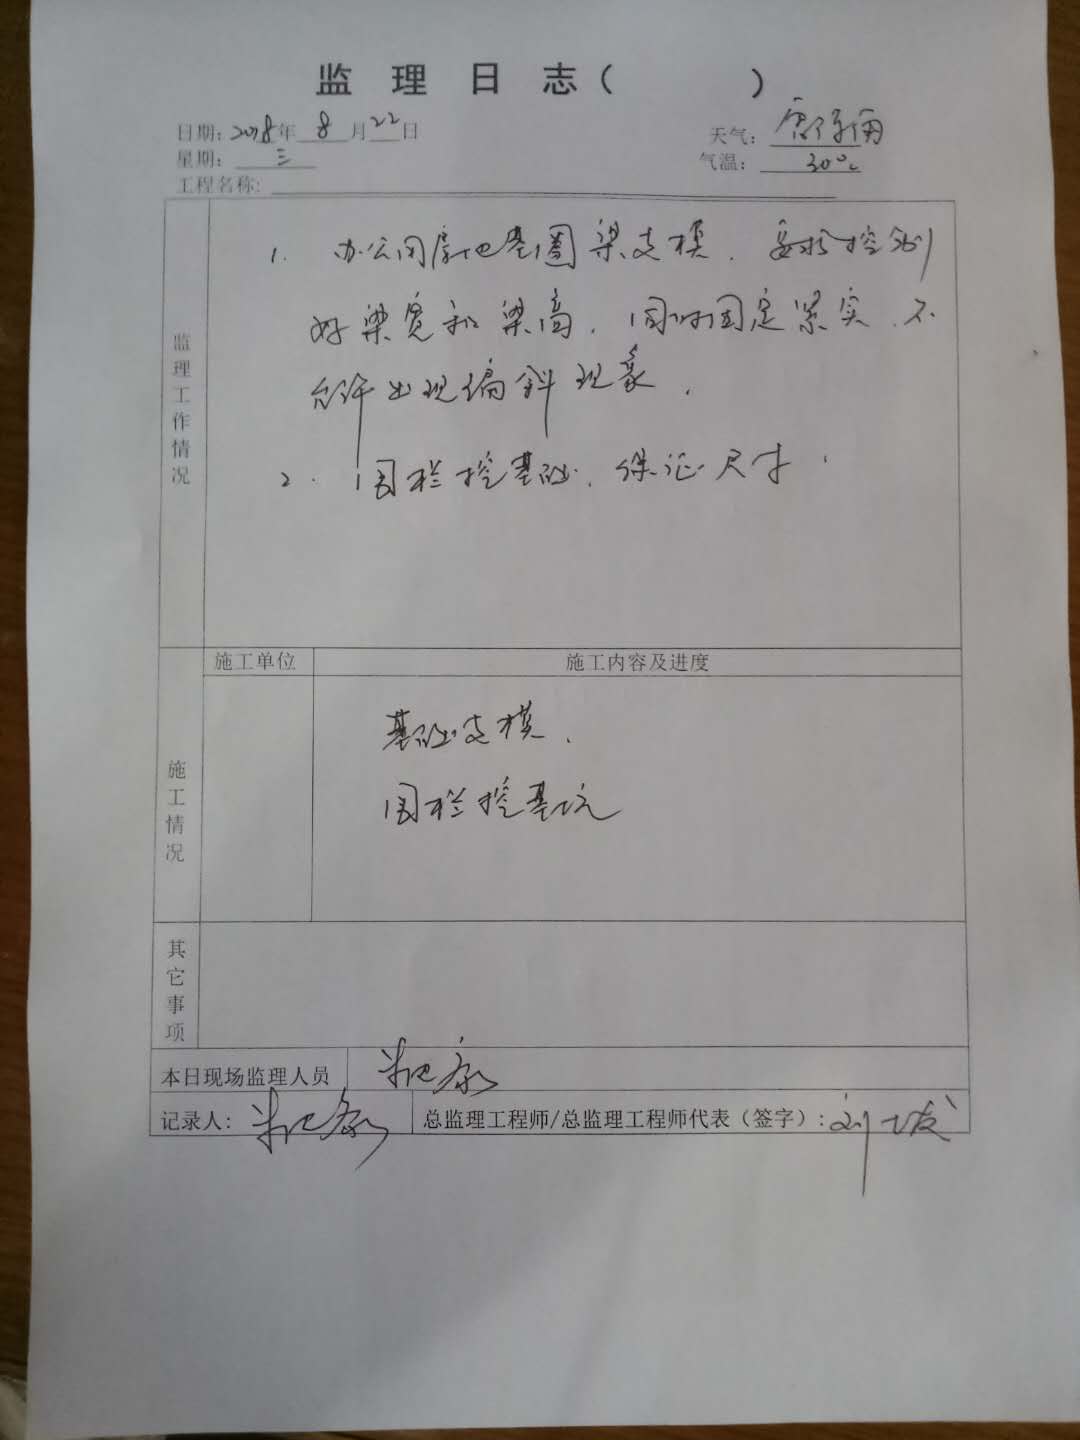 监理日志（ ）
日期：2018年 8 月 22 日
天气：
星期： 三
气温： 30℃
工程名称：
监理工作情况
1. 办公用房地基圈梁支模．要求控制
好梁宽和梁高．同时固定紧实．不
允许出现偏斜现象．
2. 围栏挖基础．保证尺寸．
施工情况
施工单位
施工内容及进度
基础支模．
围栏挖基坑
其它事项
本日现场监理人员
记录人：
总监理工程师/总监理工程师代表（签字）：